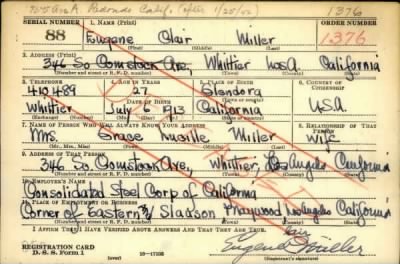 Redondo Calif. (after 1/25/42) 1376
SERIAL NUMBER 1. NAME (Print) ORDER NUMBER
88 Eugene Clair Miller 1376
(First) (Middle) (Last)
3. ADDRESS (Print)
346 So Comstock Ave, Whittier LosA. California
(Number and street or R. F. D. number) (Town) (County) (State)
3. TELEPHONE 4. AGE IN YEARS 5. PLACE OF BIRTH 6. COUNTRY OF CITIZENSHIP
410489 27 Glendora
DATE OF BIRTH
Whittier July 6 1913 California U.S.A.
(Exchange) (Number) (Mo.) (Day) (Yr.) (State or country)
7. NAME OF PERSON WHO WILL ALWAYS KNOW YOUR ADDRESS 8. RELATIONSHIP OF THAT PERSON
Mrs. Grace Miller Wife
(Mr., Mrs., Miss) (First) (Middle) (Last)
9. ADDRESS OF THAT PERSON
346 So Comstock Ave, Whittier, Los Angeles California
(Number and street or R. F. D. number) (Town) (County) (State)
10. EMPLOYER'S NAME
Consolidated Steel Corp of California
11. PLACE OF EMPLOYMENT OR BUSINESS
Corner of Eastern & Slauson Maywood Los Angeles California
(Number and street or R. F. D. number) (Town) (County) (State)
I AFFIRM THAT I HAVE VERIFIED ABOVE ANSWERS AND THAT THEY ARE TRUE.
REGISTRATION CARD
D. S. S. Form 1 (over) 16—17105
Eugene Clair Miller